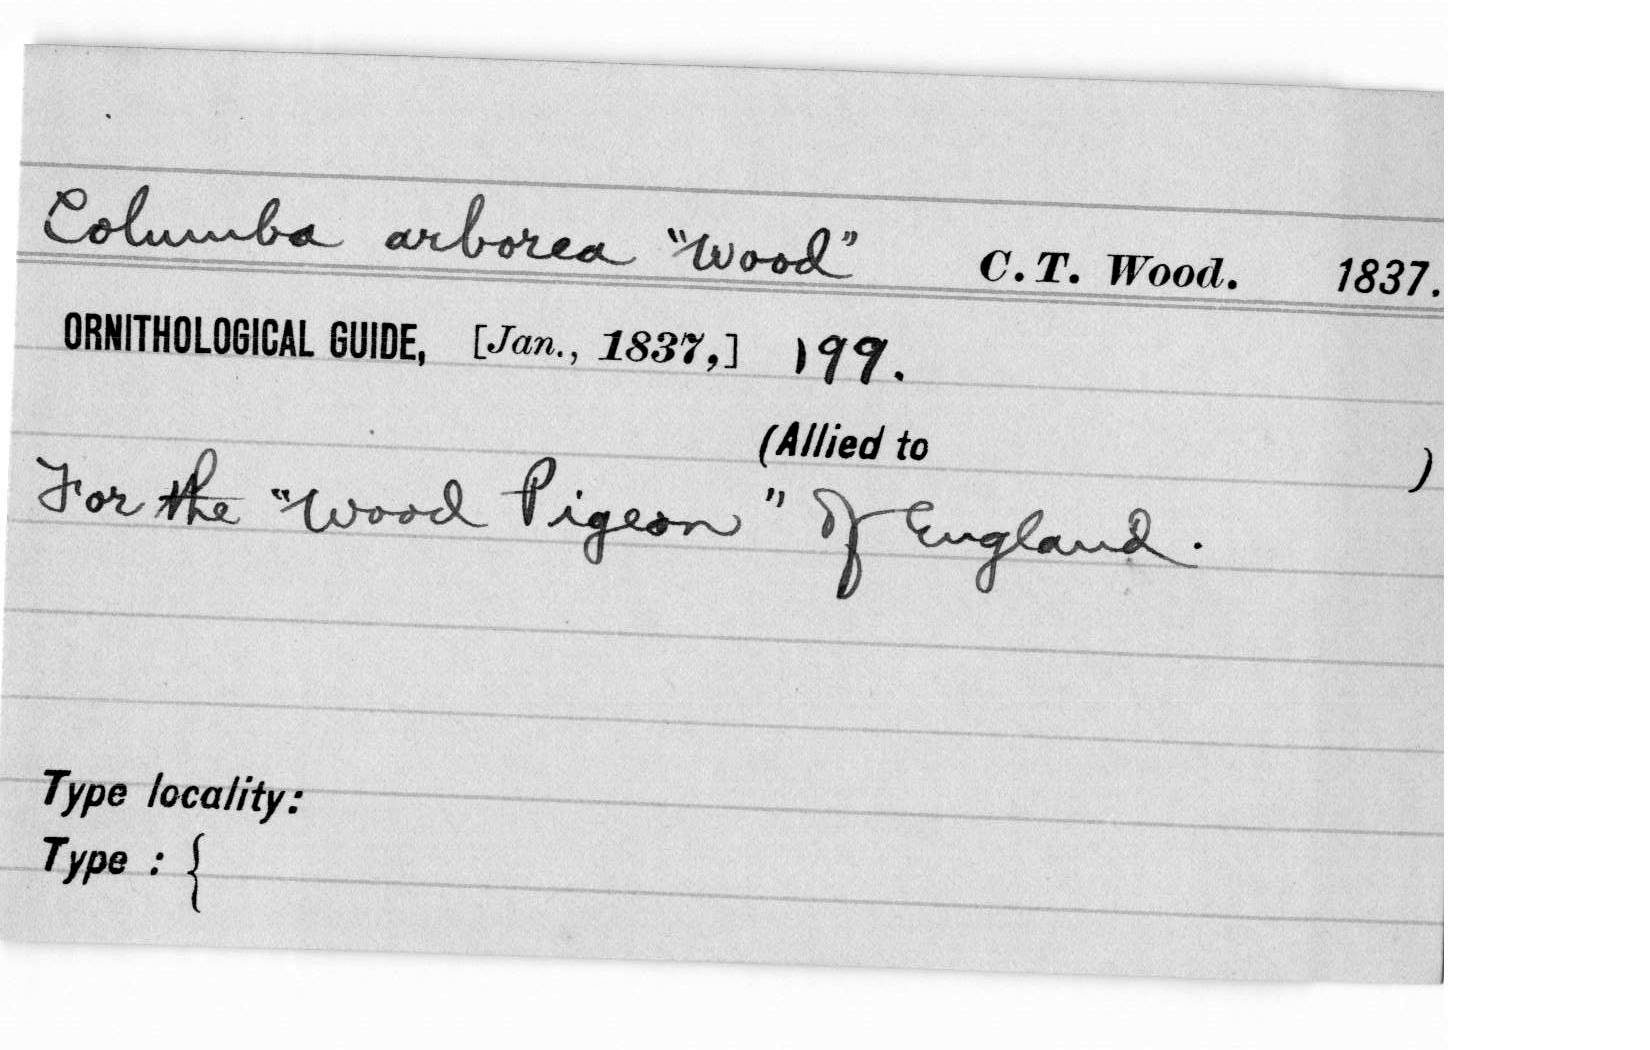 Columba arborea "Wood" C. T. Wood. 1837.
ORNITHOLOGICAL GUIDE, [Jan., 1837,] 199.
(Allied to )
For the "Wood Pigeon" of England.
Type locality:
Type : {